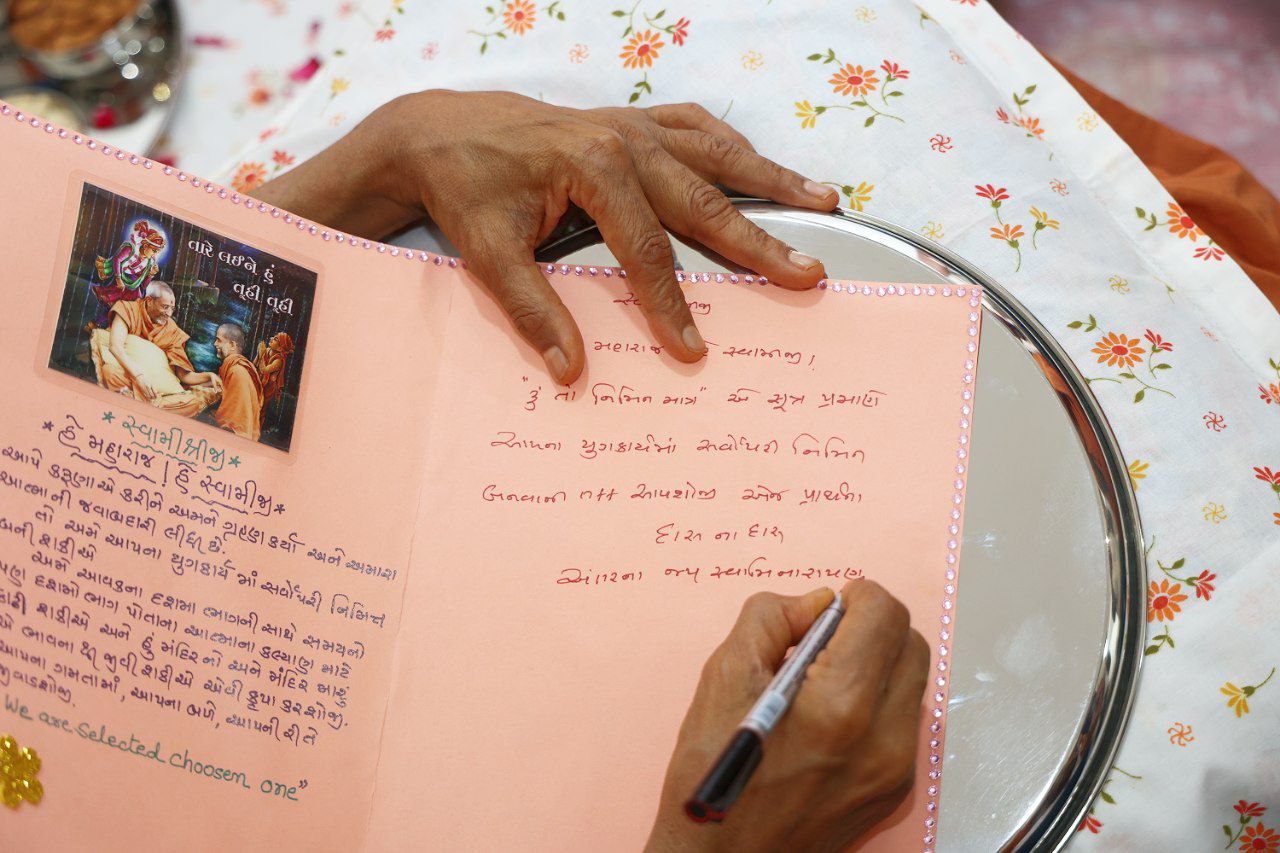 તારે લઈને હું
વૃહી વૃહી
*સ્વામીશ્રીજી*
*હે મહારાજ ! હે સ્વામીજી*
આપે કરૂણા એ કરીને અમને ગ્રહણ કર્યા અને અમારા
આત્માની જવાબદારી લીધી છે.
તો અમે આપના યુગકાર્ય માં સર્વોપરી નિમિત્ત
બની શકીએ
અમે આવકના દશમા ભાગની સાથે સમયનો
પણ દશમો ભાગ પોતાના આત્માના કલ્યાણ માટે
કાઢી શકીએ અને હું મંદિરનો અને મંદિર મારું
એ ભાવના થી જીવી શકીએ એવી કૃપા કરશોજી.
આપના ગમતામાં, આપના બળે, આપની રીતે
જીવાડશોજી.
We are selected choosen one"
મહારાજ સ્વામીજી!
"હું તો નિમિત્ત માત્ર" એ સૂત્ર પ્રમાણે
આપના યુગકાર્યમાં સર્વોપરી નિમિત્ત
બનવાની આપશોજી એજ પ્રાર્થના
દાસ ના દાસ
અંતરના જય સ્વામિનારાયણ